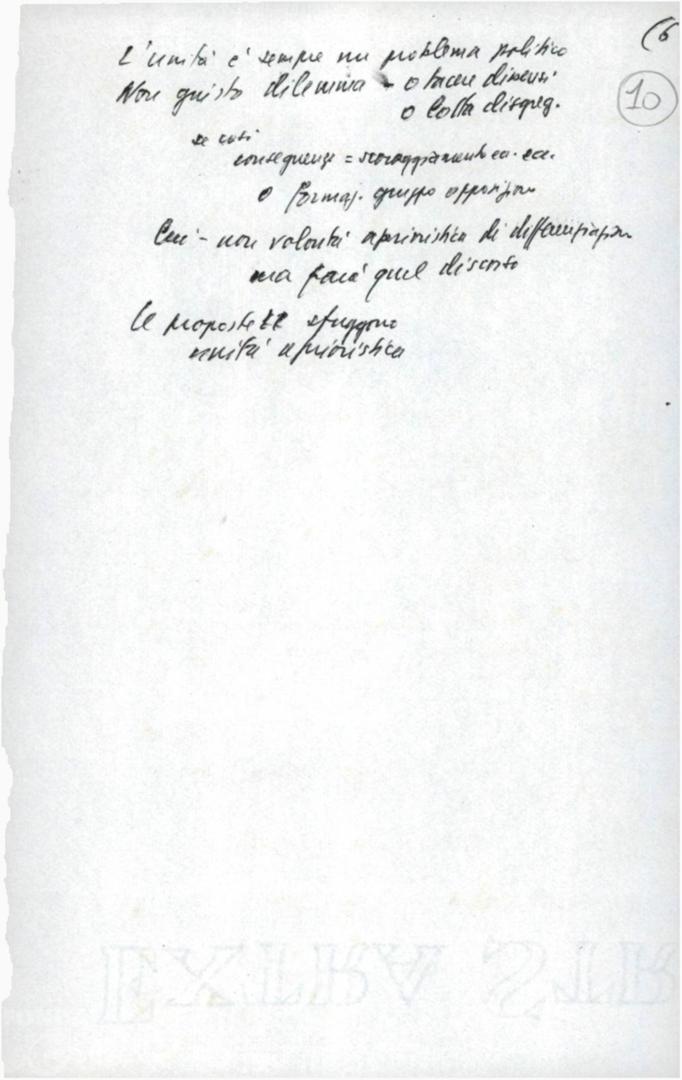 (6
10
L'unità è sempre un problema politico
Non giusto dilemma - o tacere dissensi
o lotta disgreg.
se così
conseguenze = scoraggiamento ecc. ecc.
o formaz. gruppo opposizione
Qui - non volontà aprioristica di differenziazion
ma farà quel discorso
le proposte sfuggono
unità aprioristica
EXTRA